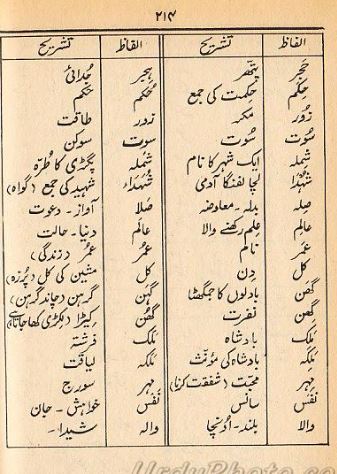 ۲۱۴
الفاظ تشریح الفاظ تشریح
حَجَر پتھر ہِجر جُدائی
حِکَم حِکمت کی جمع حُکم حَکم
زُور مَکر زور طاقت
سُوت سُوت سَوت سوکن
شِملہ ایک شہر کا نام شَملہ پگڑی کا طُرّہ
شُہدا لُچا لفنگا آدمی شُہَداء شہید کی جمع (گواہ)
صِلہ بدلہ۔ معاوضہ صَلا آواز۔ دعوت
عالِم عِلم رکھنے والا عالَم دنیا۔ حالت
عُمَر نام عُمر عُمر (زندگی)
کل دِن کَل مشین کی کل (پُرزہ)
گھَن بادلوں کا جمگھٹا گہن گرہن (چاند گرہن)
گھِن نفرت گھُن کیڑا (لکڑی کھا جاتا ہے)
مَلِک بادشاہ مَلَک فرشتہ
مَلِکہ بادشاہ کی مؤنث مَلَکہ لیاقت
مِہر محبّت (شفقت کرنا) مِہر سورج
نَفَس سانس نَفس خواہش۔ جان
والا بلند۔ اُونچا والہ شیدا۔